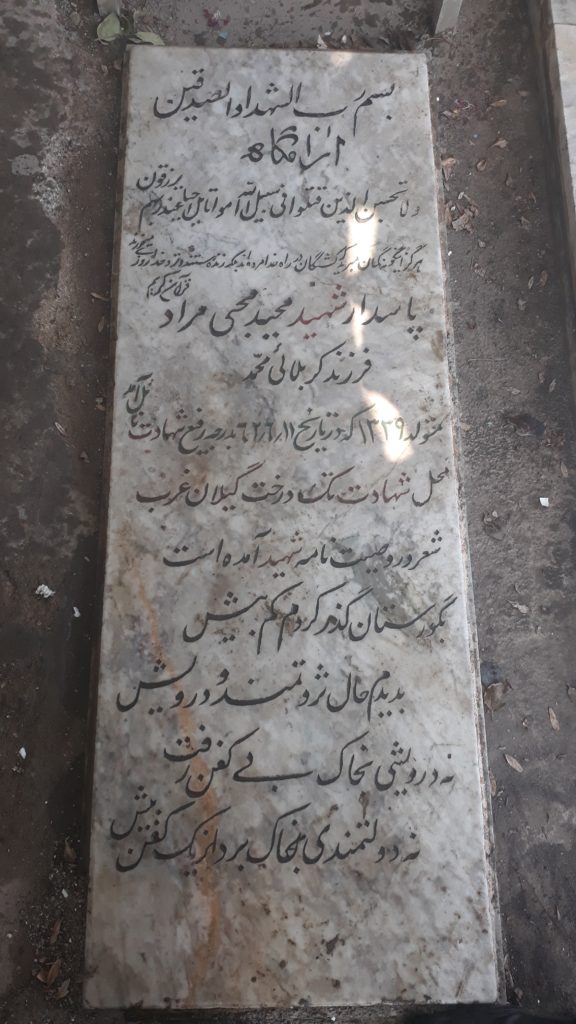 بسم رب الشهدا والصدقین
آرامگاه
ولا تحسبن الذین قتلوا فی سبیل الله امواتا بل احیا عند ربهم یرزقون
هرگز گمان مبر که کشتگان در راه خدا مرده اند بلکه زنده هستند و نزد خدا روزی میخورند
قرآن کریم
پاسدار شهید مجید محبی مراد
فرزند کربلائی محمد
متولد ۱۳۳۹ که در تاریخ ۶۲٫۶٫۱۱ بدرجه رفیع شهادت نائل آمد
محل شهادت تک درخت گیلان غرب
شعر در وصیت نامه شهید آمده است
بگورستان گذر کردم کم بیش
بدیدم حال ثروتمند و درویش
نه درویشی بخاک بی کفن رفت
نه دولتمندی بخاک برد از یک کفن بیش